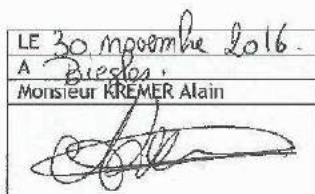 LE 30 novembre 2016.
A Biegles.
Monsieur KREMER Alain